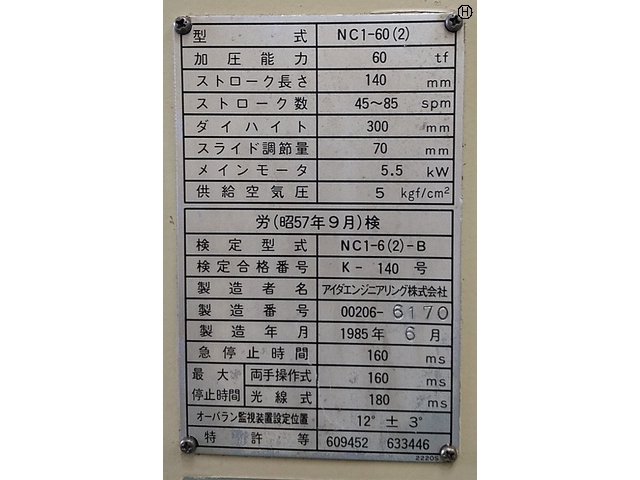 Ⓗ
型式 NC1-60(2)
加圧能力 60 tf
ストローク長さ 140 mm
ストローク数 45～85 spm
ダイハイト 300 mm
スライド調節量 70 mm
メインモータ 5.5 kW
供給空気圧 5 kgf/cm²
労(昭57年9月)検
検定型式 NC1-6(2)-B
検定合格番号 K-140号
製造者名 アイダエンジニアリング株式会社
製造番号 00206-6170
製造年月 1985年6月
急停止時間 160 ms
最大停止時間 両手操作式 160 ms
光線式 180 ms
オーバラン監視装置設定位置 12°±3°
特許等 609452 633446